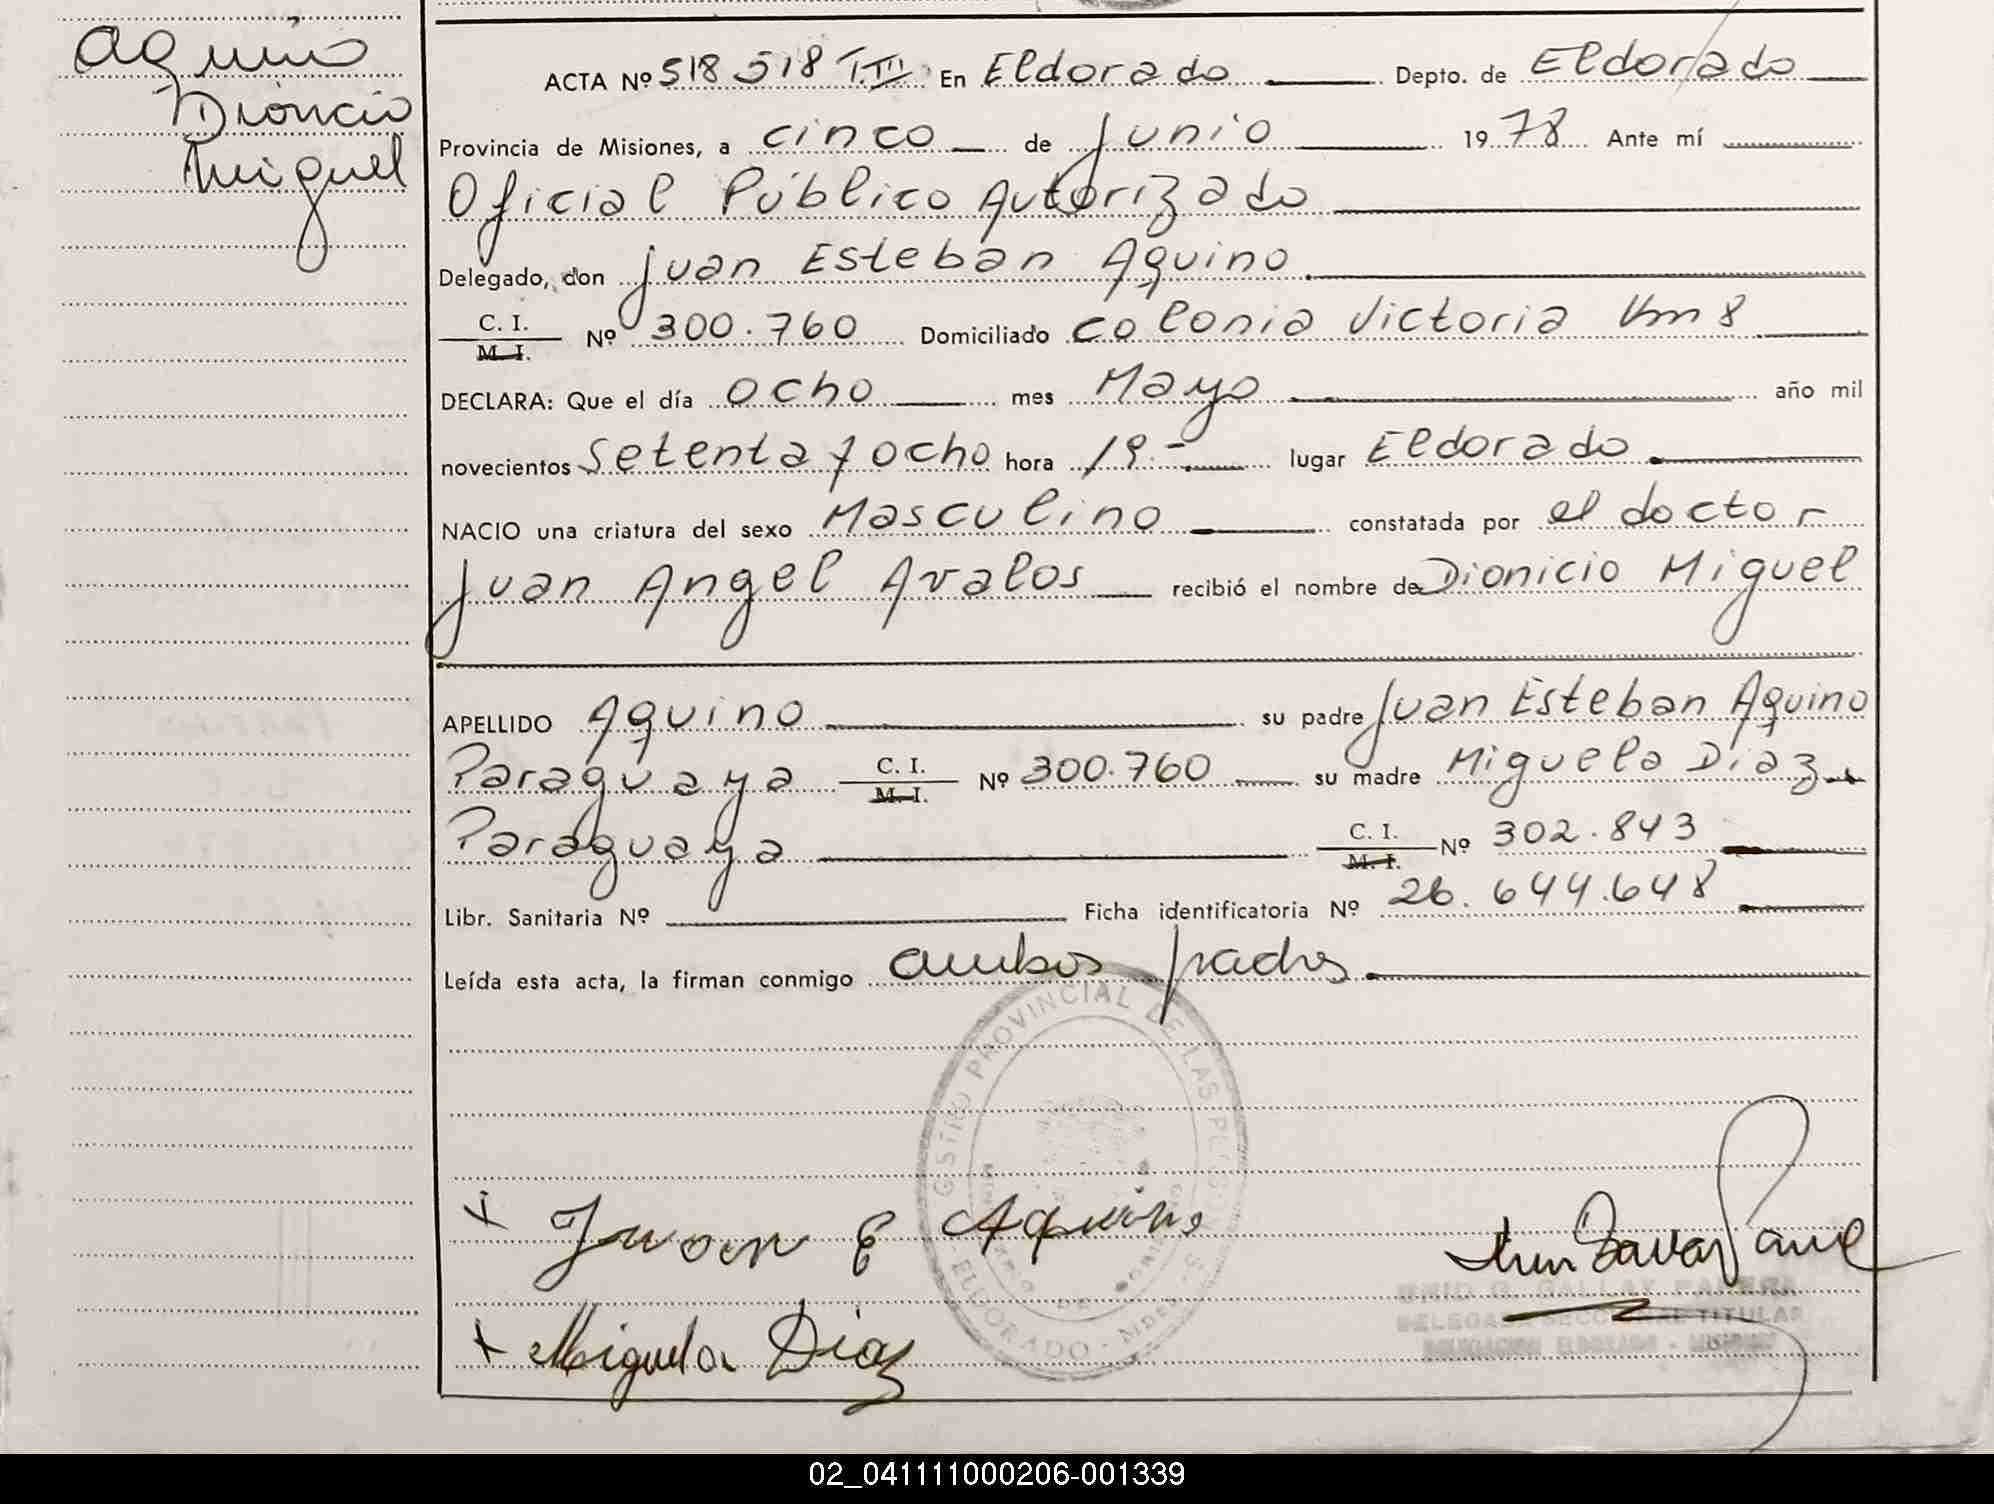 Aquino
Dionicio
Miguel
ACTA Nº 518 518 T.III En Eldorado Depto. de Eldorado
Provincia de Misiones, a cinco de Junio 1978 Ante mí
Oficial Público Autorizado
Delegado, don Juan Esteban Aquino
C. I.
M. I. Nº 300.760 Domiciliado colonia Victoria Km 8
DECLARA: Que el día ocho mes Mayo año mil
novecientos setenta y ocho hora 19.- lugar Eldorado
NACIO una criatura del sexo Masculino constatada por el doctor
Juan Angel Avalos recibió el nombre de Dionicio Miguel
APELLIDO Aquino su padre Juan Esteban Aquino
Paraguaya C. I. M. I. Nº 300.760 su madre Miguela Díaz
Paraguaya C. I. M. I. Nº 302.843
Libr. Sanitaria Nº Ficha identificatoria Nº 26.644.648
Leída esta acta, la firman conmigo ambos padres
PROVINCIAL DE LAS
ELDORADO
x Juan E Aquino
G. GALLAY
DELEGADA SECCIONAL TITULAR
x Miguela Diaz
02_041111000206-001339